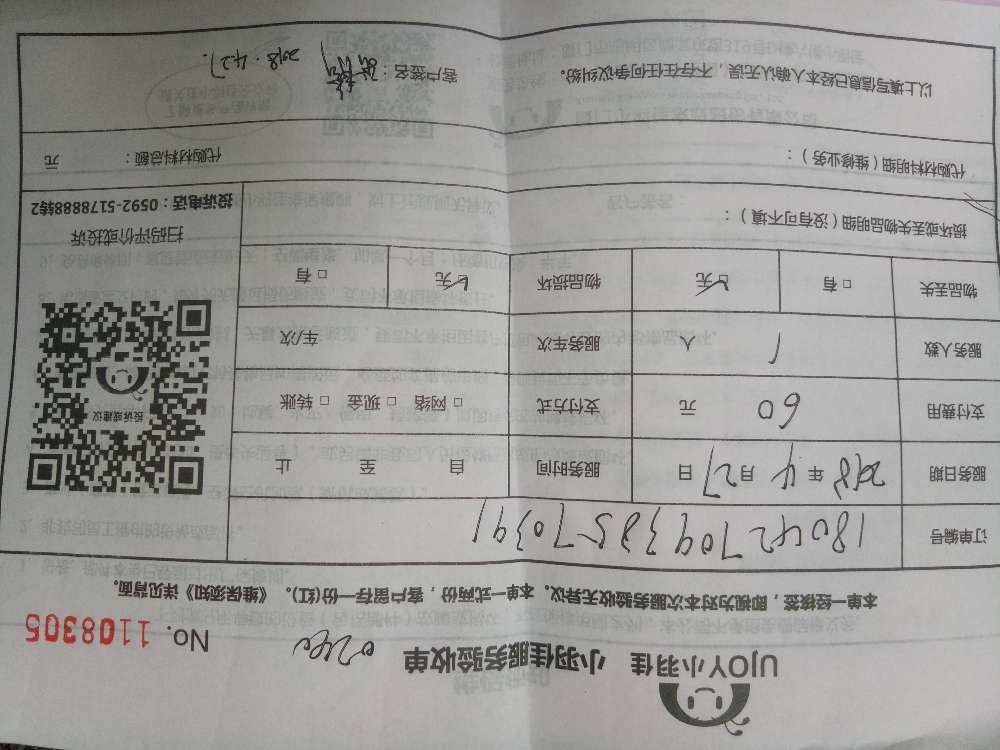 UJOY小羽佳 小羽佳服务验收单 No. 1108305
本单一经核签，即视为对本次服务验收无异议。本单一式两份，客户留存一份(红)。《维保须知》详见背面。
订单编号 1804270938570391
服务日期 2018 年 4 月 27 日 服务时间 自 至 止
支付费用 60 元 支付方式 □ 网络 □ 现金 □ 转账
服务人数 1 人 服务车次 车次
物品丢失 □ 有 □ 无 物品损坏 □ 无 □ 有
投诉或建议
扫码评价或投诉
投诉电话：0592-5178888转2
损坏或丢失物品明细（没有可不填）：
代购材料明细（维修业务）： 代购材料总额： 元
以上填写信息已经本人确认无误，不存在任何争议纠纷。 客户签名： 2018.4.27.